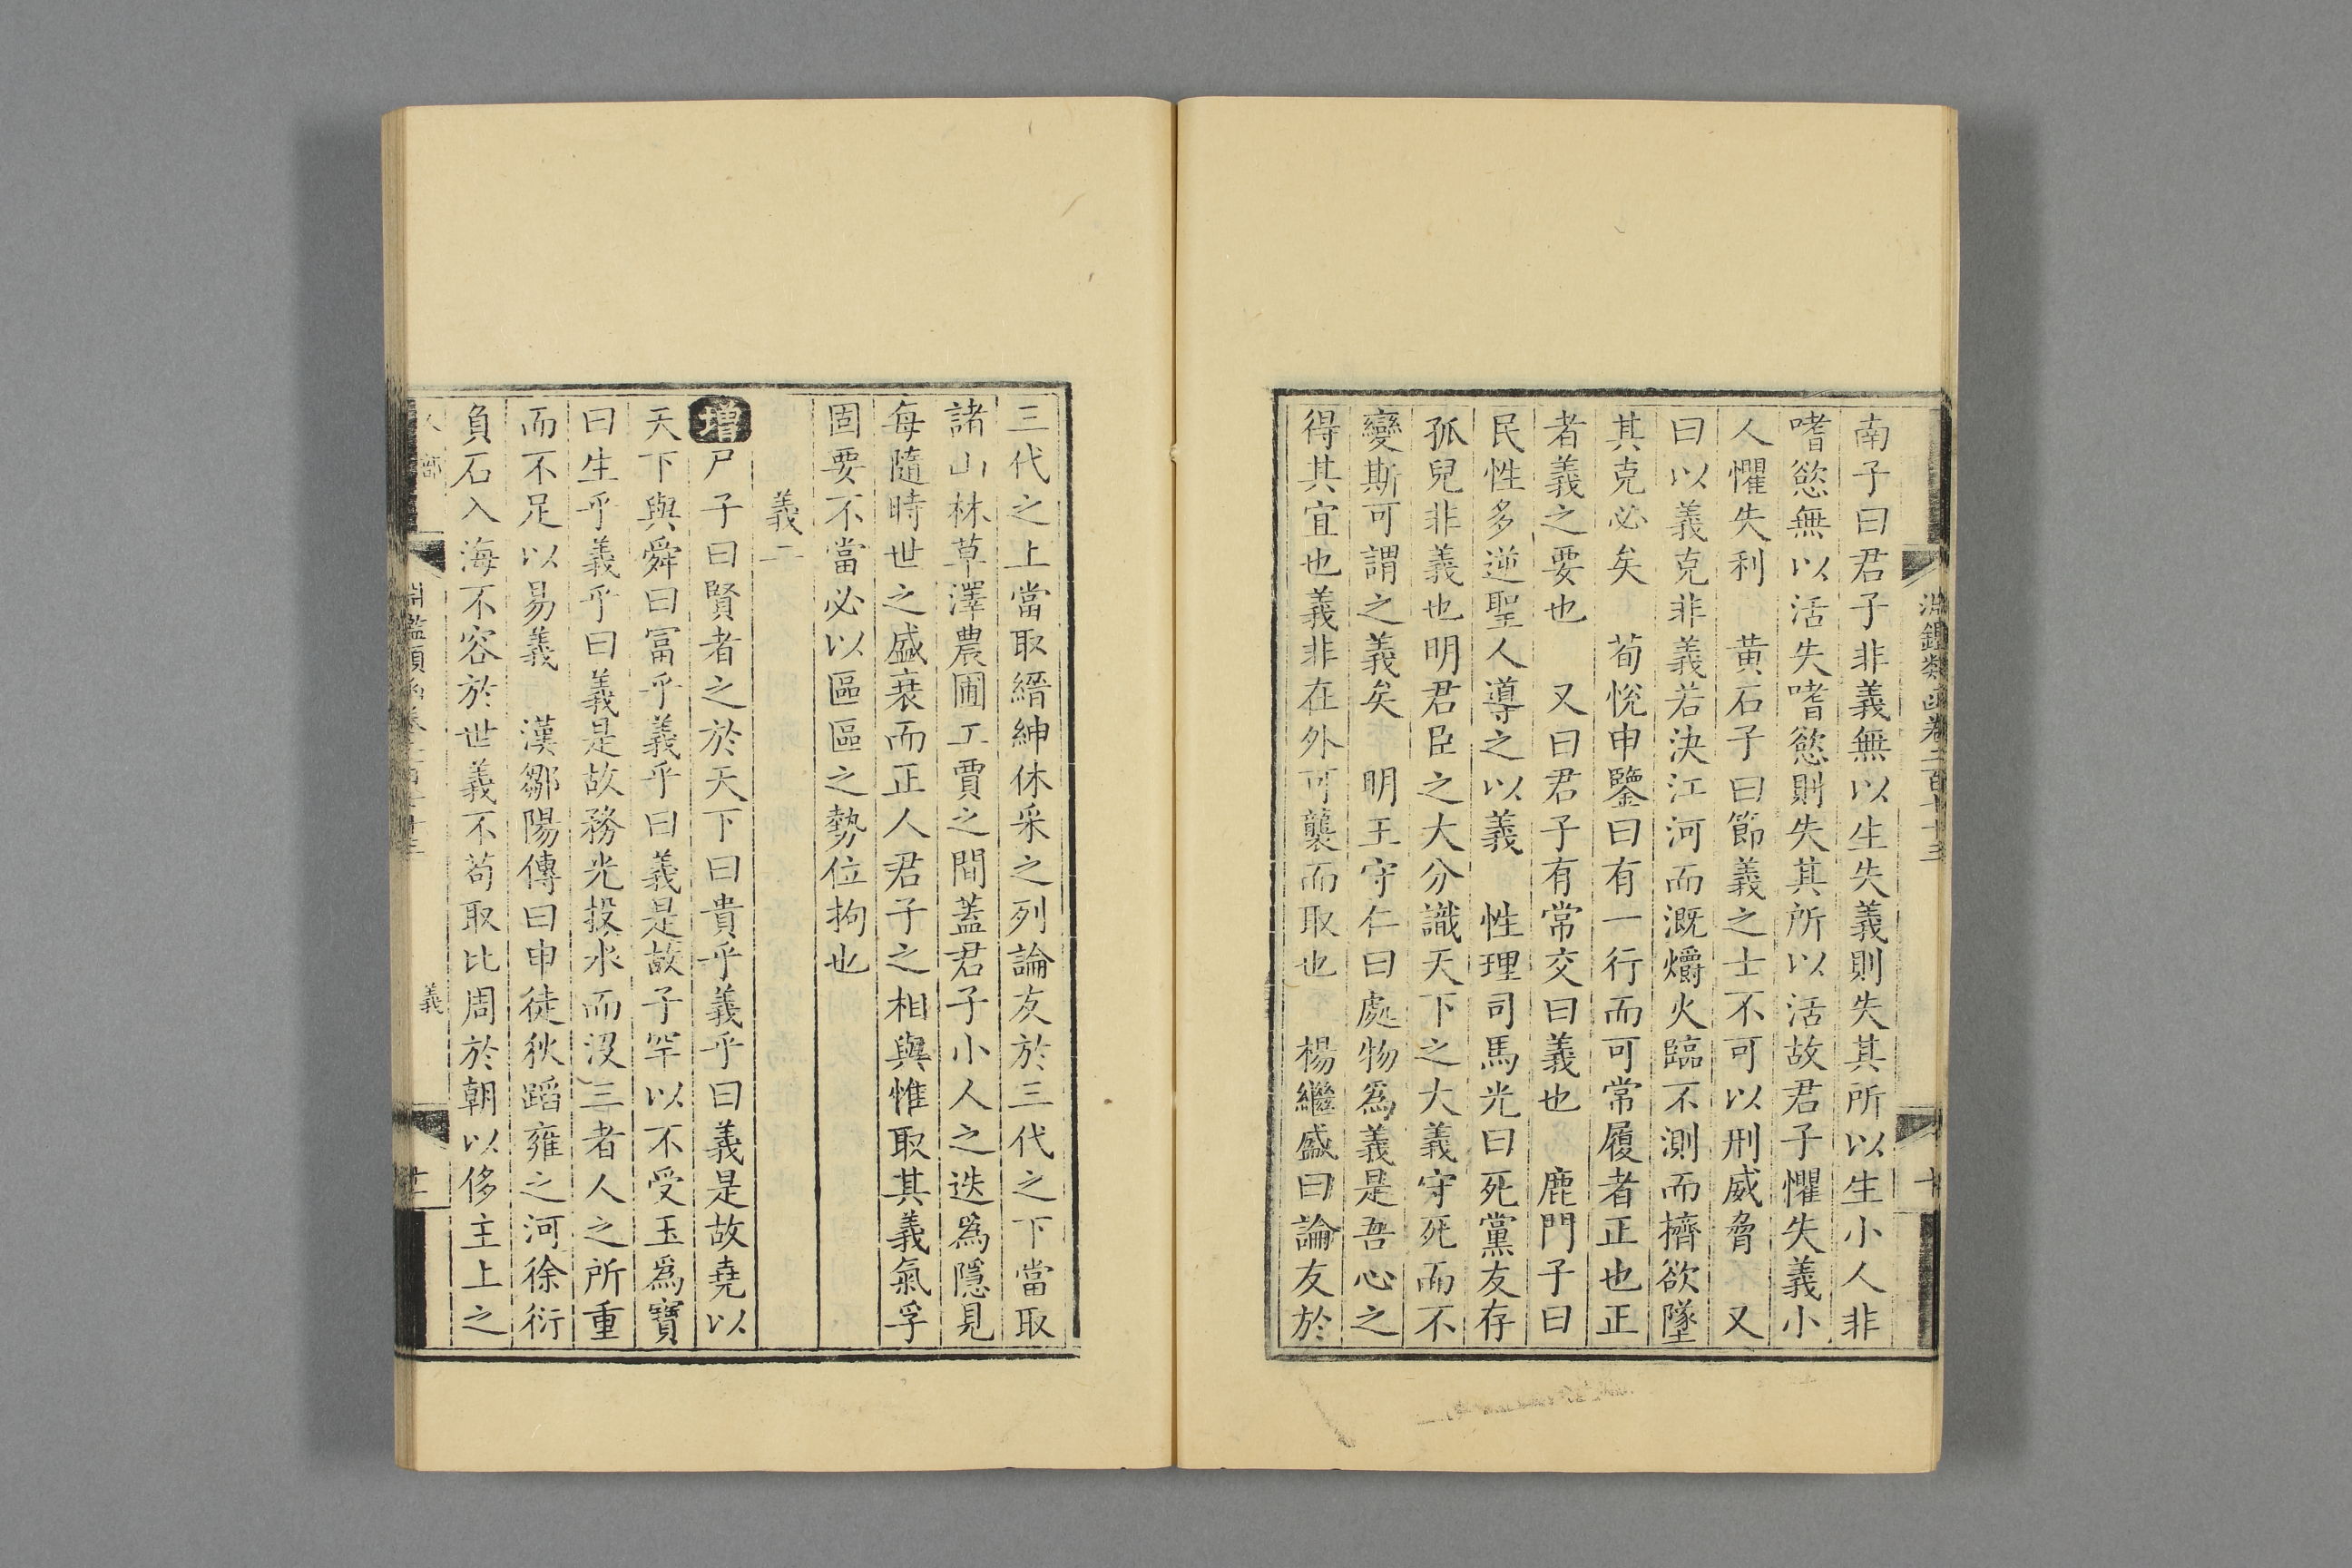 南子曰君子非義無以生失義則失其所以生小人非
嗜慾無以活失嗜慾則失其所以活故君子懼失義小
人懼失利　黄石子曰節義之士不可以刑威脅　又
曰以義克非義若決江河而溉爝火臨不測而擠欲墜
其克必矣　荀悅申鑒曰有一行而可常履者正也正
者義之要也　又曰君子有常交曰義也　鹿門子曰
民性多逆聖人導之以義　性理司馬光曰死黨友存
孤兒非義也明君臣之大分識天下之大義守死而不
變斯可謂之義矣　明王守仁曰處物爲義是吾心之
得其宜也義非在外可襲而取也　楊繼盛曰論友於
三代之上當取縉紳休采之列論友於三代之下當取
諸山林草澤農圃工賈之間蓋君子小人之迭爲隱見
每隨時世之盛衰而正人君子之相與惟取其義氣孚
固要不當必以區區之勢位拘也
義二
增尸子曰賢者之於天下曰貴乎義乎曰義是故堯以
天下與舜曰富乎義乎曰義是故子罕以不受玉爲寶
曰生乎義乎曰義是故務光投水而沒三者人之所重
而不足以易義　漢鄒陽傳曰申徒狄蹈雍之河徐衍
負石入海不容於世義不苟取比周於朝以侈主上之
義